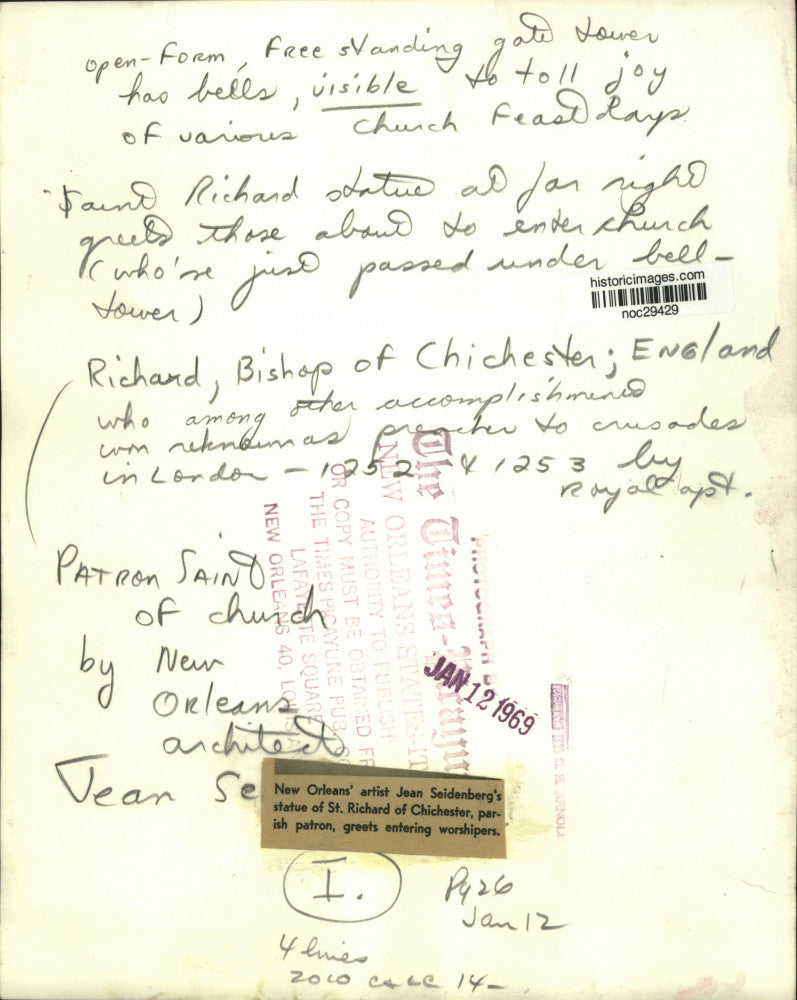 open-Form, Free standing gate tower
has bells, visible to toll joy
of various Church Feast Days.
Saint Richard statue at far right
greets those about to enter church
(who've just passed under bell-
tower)
historicimages.com
noc29429
Richard, Bishop of Chichester; England
who among other accomplishments
won reknown as preacher to crusades
in London - 1252 & 1253 by
Royal apt.
Patron Saint
of church
by New
Orleans
architect
Jean Se
The Times-Picayune
NEW ORLEANS STATES-IT
AUTHORITY TO PUBLISH
OR COPY MUST BE OBTAINED FR
THE TIMES-PICAYUNE PUB. CO
LAFAYETTE SQUARE
NEW ORLEANS 40, LOUISIA
PHOTOGRAPH B
JAN 12 1969
G. E. ARNOLD
New Orleans' artist Jean Seidenberg's
statue of St. Richard of Chichester, par-
ish patron, greets entering worshipers.
I.
Pg 26
Jan 12
4 lines
2010 14-